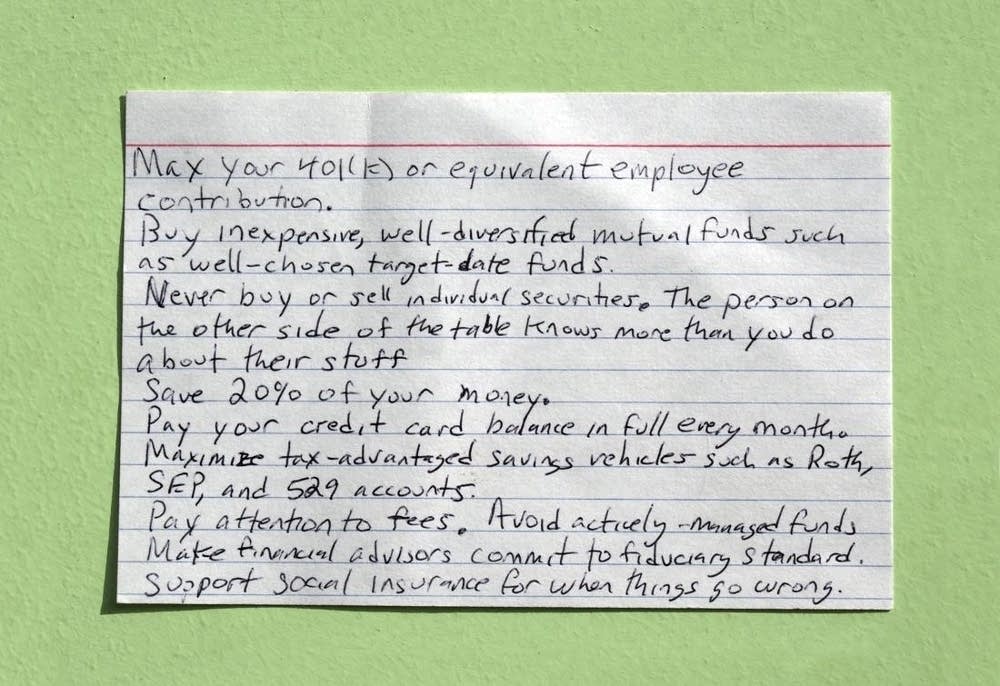 Max your 401(k) or equivalent employee
contribution.
Buy inexpensive, well-diversified mutual funds such
as well-chosen target-date funds.
Never buy or sell individual securities. The person on
the other side of the table knows more than you do
about their stuff
Save 20% of your money.
Pay your credit card balance in full every month.
Maximize tax-advantaged savings vehicles such as Roth,
SEP, and 529 accounts.
Pay attention to fees. Avoid actively-managed funds
Make financial advisors commit to fiduciary standard.
Support social insurance for when things go wrong.